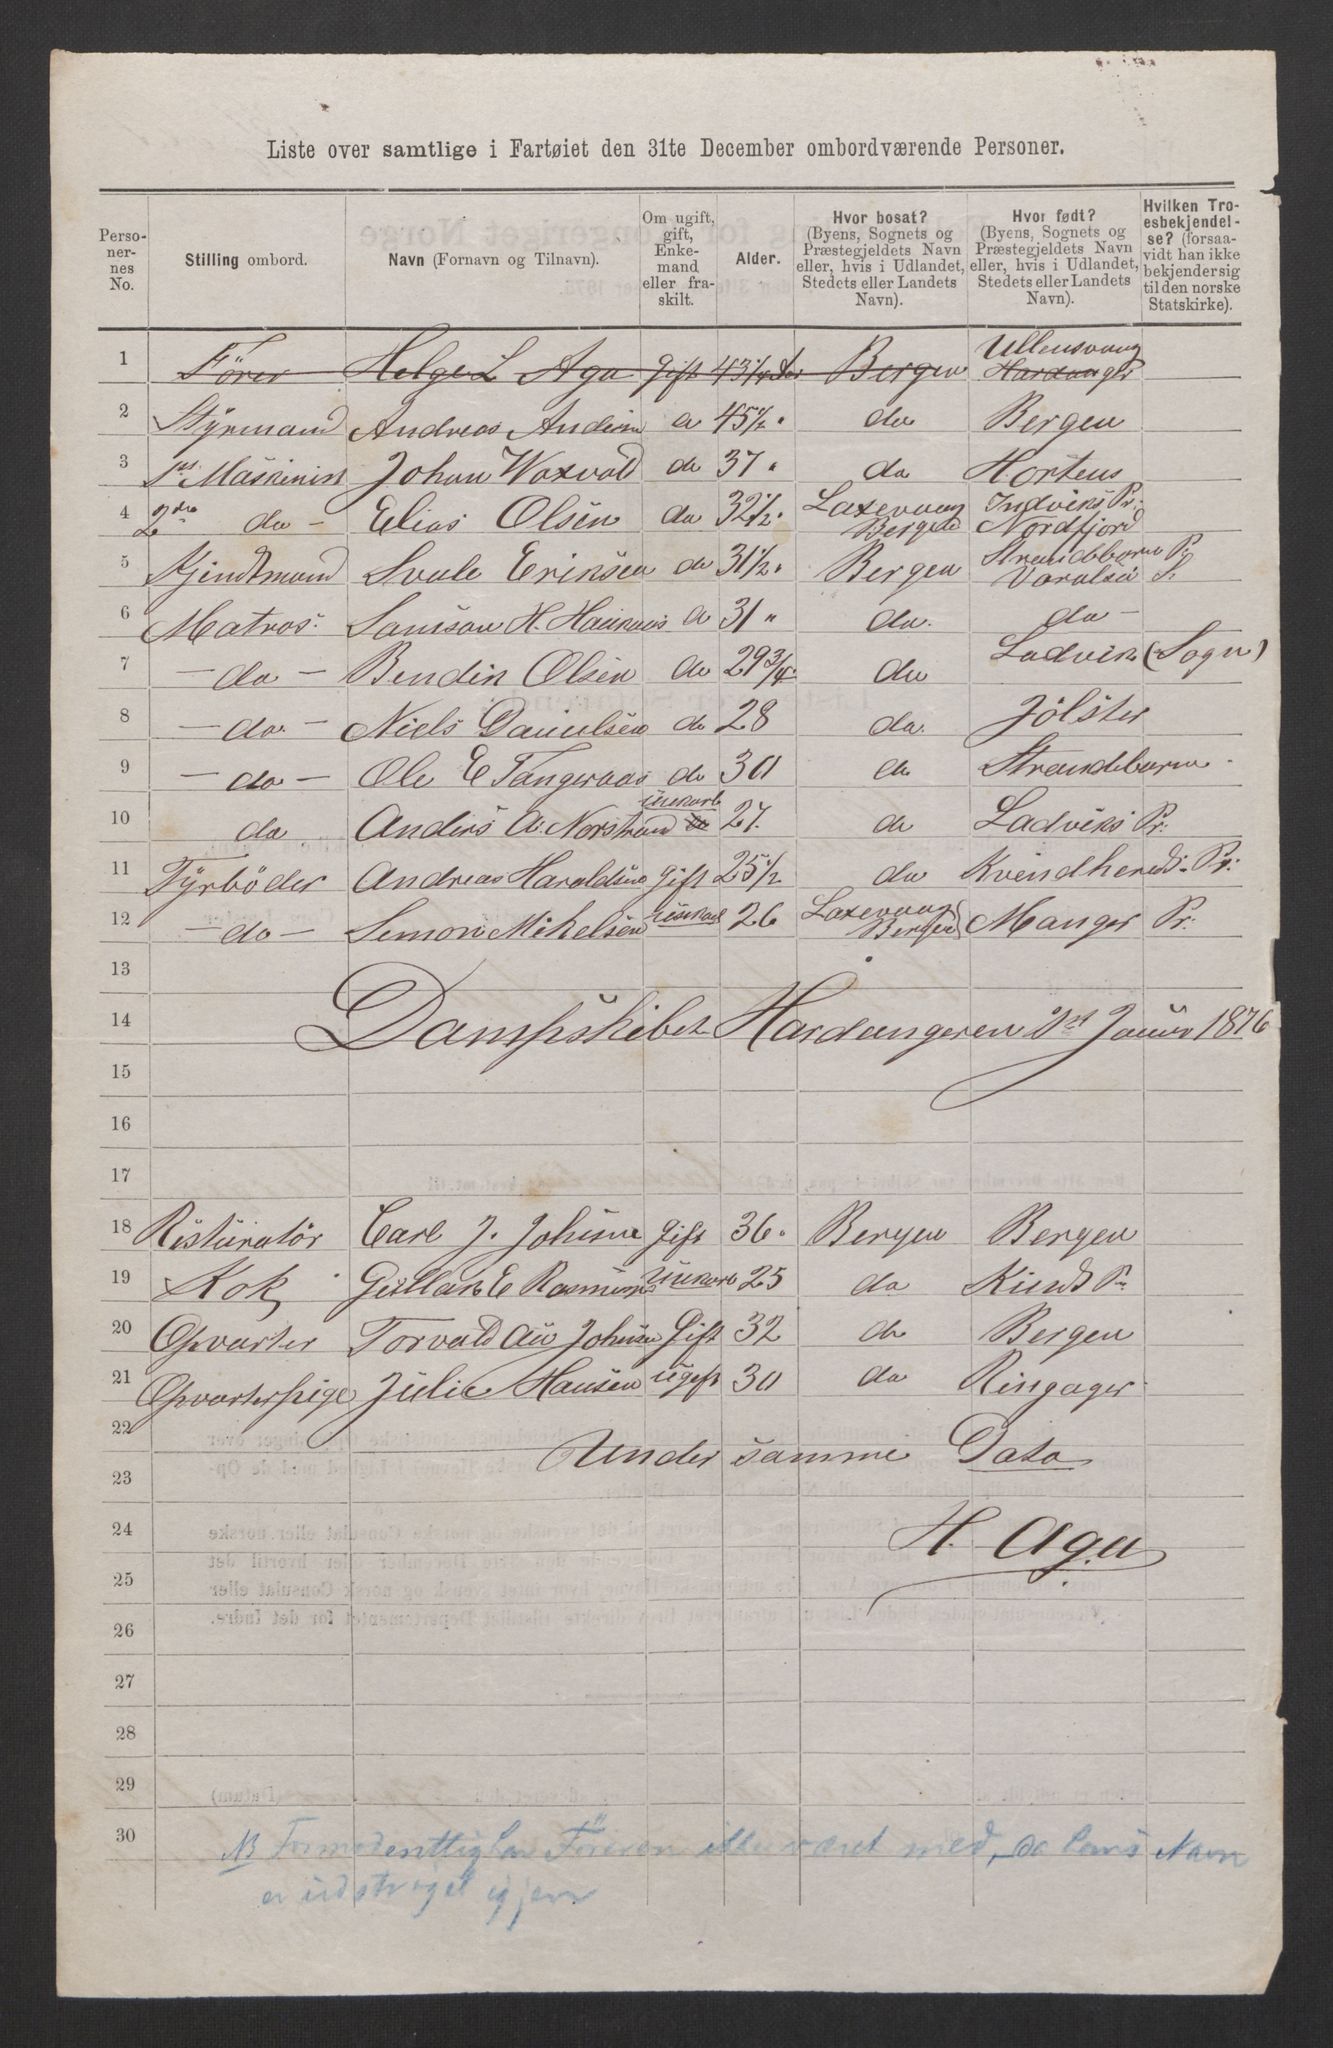 Liste over samtlige i Fartøiet den 31te December ombordværende Personer.
Personernes No. | Stilling ombord. | Navn (Fornavn og Tilnavn). | Om ugift, gift, Enkemand eller fraskilt. | Alder. | Hvor bosat? (Byens, Sognets og Præstegjeldets Navn eller, hvis i Udlandet, Stedets eller Landets Navn). | Hvor født? (Byens, Sognets og Præstegjeldets Navn eller, hvis i Udlandet, Stedets eller Landets Navn). | Hvilken Troesbekjendelse? (forsaavidt han ikke bekjender sig til den norske Statskirke).
1 Förer Helge L Aga gift 43 1/4 Bergen Ullensvang Hardanger
2 Styrmand Andreas Andersen do 45 1/2 " do Bergen
3 1ste Maskinist Johan Woxvold do 37 " do Hortens
4 2den do - Elias Olsen do 32 1/2 " Laxevaag Bergen Indviks Pr: Nordfjord
5 Kjendtmand Svale Eriksen do 31 1/2 " Bergen Strandebarm Pr: Varalsö S.
6 Matros: Samson H. do 31 " do. do -
7 - do - Bendik Olsen do 29 3/4 do Ladvik (Sogn)
8 - do - Niels Danielsen do 28 do Jölster
9 - do - Ole E Tangeraas do 30 do Strandebarm
10 do Anders A. Norstrand Unkarl do 27. do Ladviks Pr:
11 Fyrböder Andreas Haraldsen gift 25 1/2 do Kvindherreds Pr:
12 - do - Simon Mikelsen Unkarl 26 Laxevaag Bergen Manger Pr:
13
14 Dampskibet Hardangeren 2det Januar 1876
15
16
17
18 Restauratör Carl J. Johnsen Gift 36 " Bergen Bergen
19 Kok E Rasmussen Unkarl 25 do Kinds Pr
20 Opvarter Torvald Au Johnsen Gift 32 do Bergen
21 Opvarterpige Julie Hansen ugift 30 do Ringager
22
Under samme Dato
23
24 H. Aga
25
26
27
28
29
30
NB Formodentlig har Föreren ikke været med, da hans Navn
er udstrøget igjen